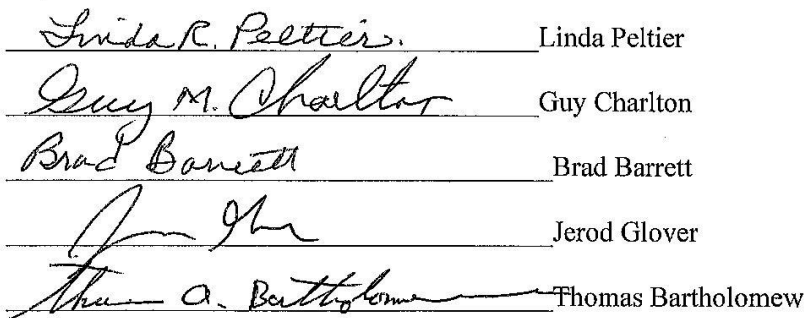 Linda R. Peltier. Linda Peltier
Guy M. Charlton Guy Charlton
Brad Barrett Brad Barrett
Jerod Glover
Thomas A. Bartholomew Thomas Bartholomew